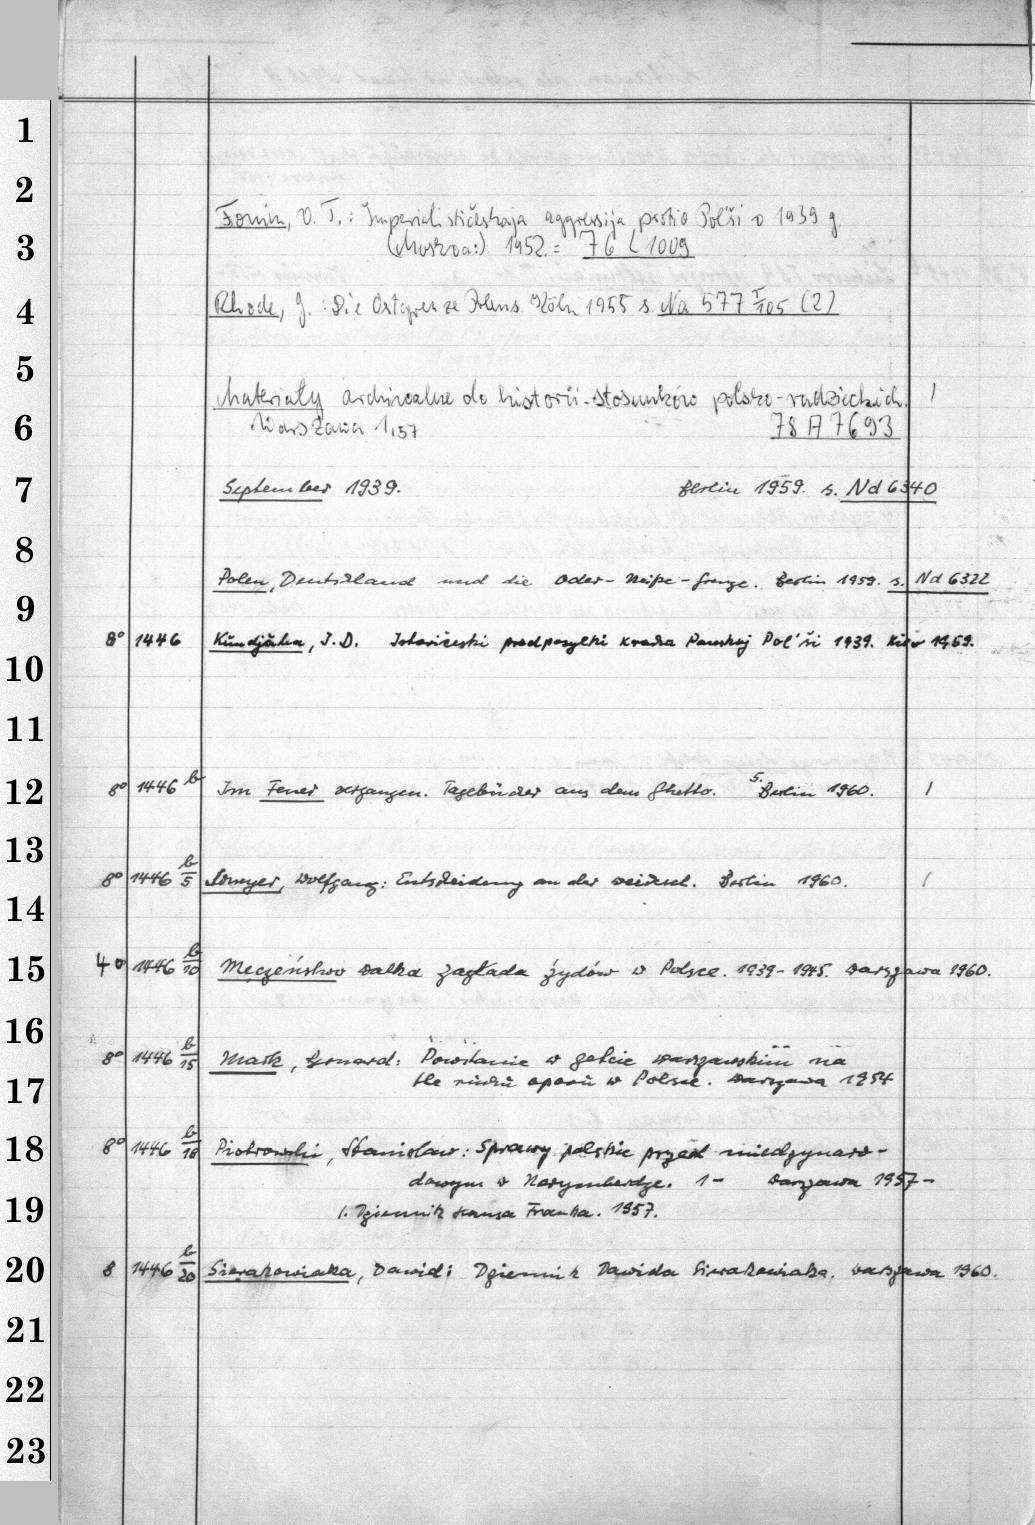 1
2
Fomin, V. T.: Imperialističeskaja aggressija protiv Pol'ši v 1939 g.
3
(Moskva:) 1952.= 76 L 1009
4
Rhode, G. : Die Ostgrenze Polens. Köln 1955 s. Na 577 I/105 (2)
5
Materiały archiwalne do historii stosunków polsko-radzieckich. 1
6
Warszawa 1,57 78 A 7693
7
September 1939. Berlin 1959. s. Nd 6340
8
Polen, Deutschland und die Oder-Neiße-Grenze. Berlin 1959. s. Nd 6322
9
8° 1446 I. D. predposylki kracha Panskoj Pol'ši 1939. Kiev 1959.
10
11
12
8° 1446 b Im Feuer vergangen. Tagebücher aus dem Ghetto. 5. Berlin 1960. 1
13
8° 1446 b/5 Wolfgang: Entscheidung an der Weichsel. Berlin 1960. 1
14
15
4° 1446 b/10 Męczeństwo walka zagłada żydów w Polsce. 1939-1945. Warszawa 1960.
16
8° 1446 b/15 Mark, Bernard: Powstanie w getcie warszawskim na
17
tle ruchu oporu w Polsce. Warszawa 1954
18
8° 1446 b/18 Piotrowski, Stanisław: Sprawy polskie przed międzynaro-
dowym w Norymberdze. 1- Warszawa 1957-
19
1. Dziennik Hansa Franka. 1957.
20
8 1446 b/20 Sierakowiaka, Dawid: Dziennik Dawida Sierakowiaka. Warszawa 1960.
21
22
23